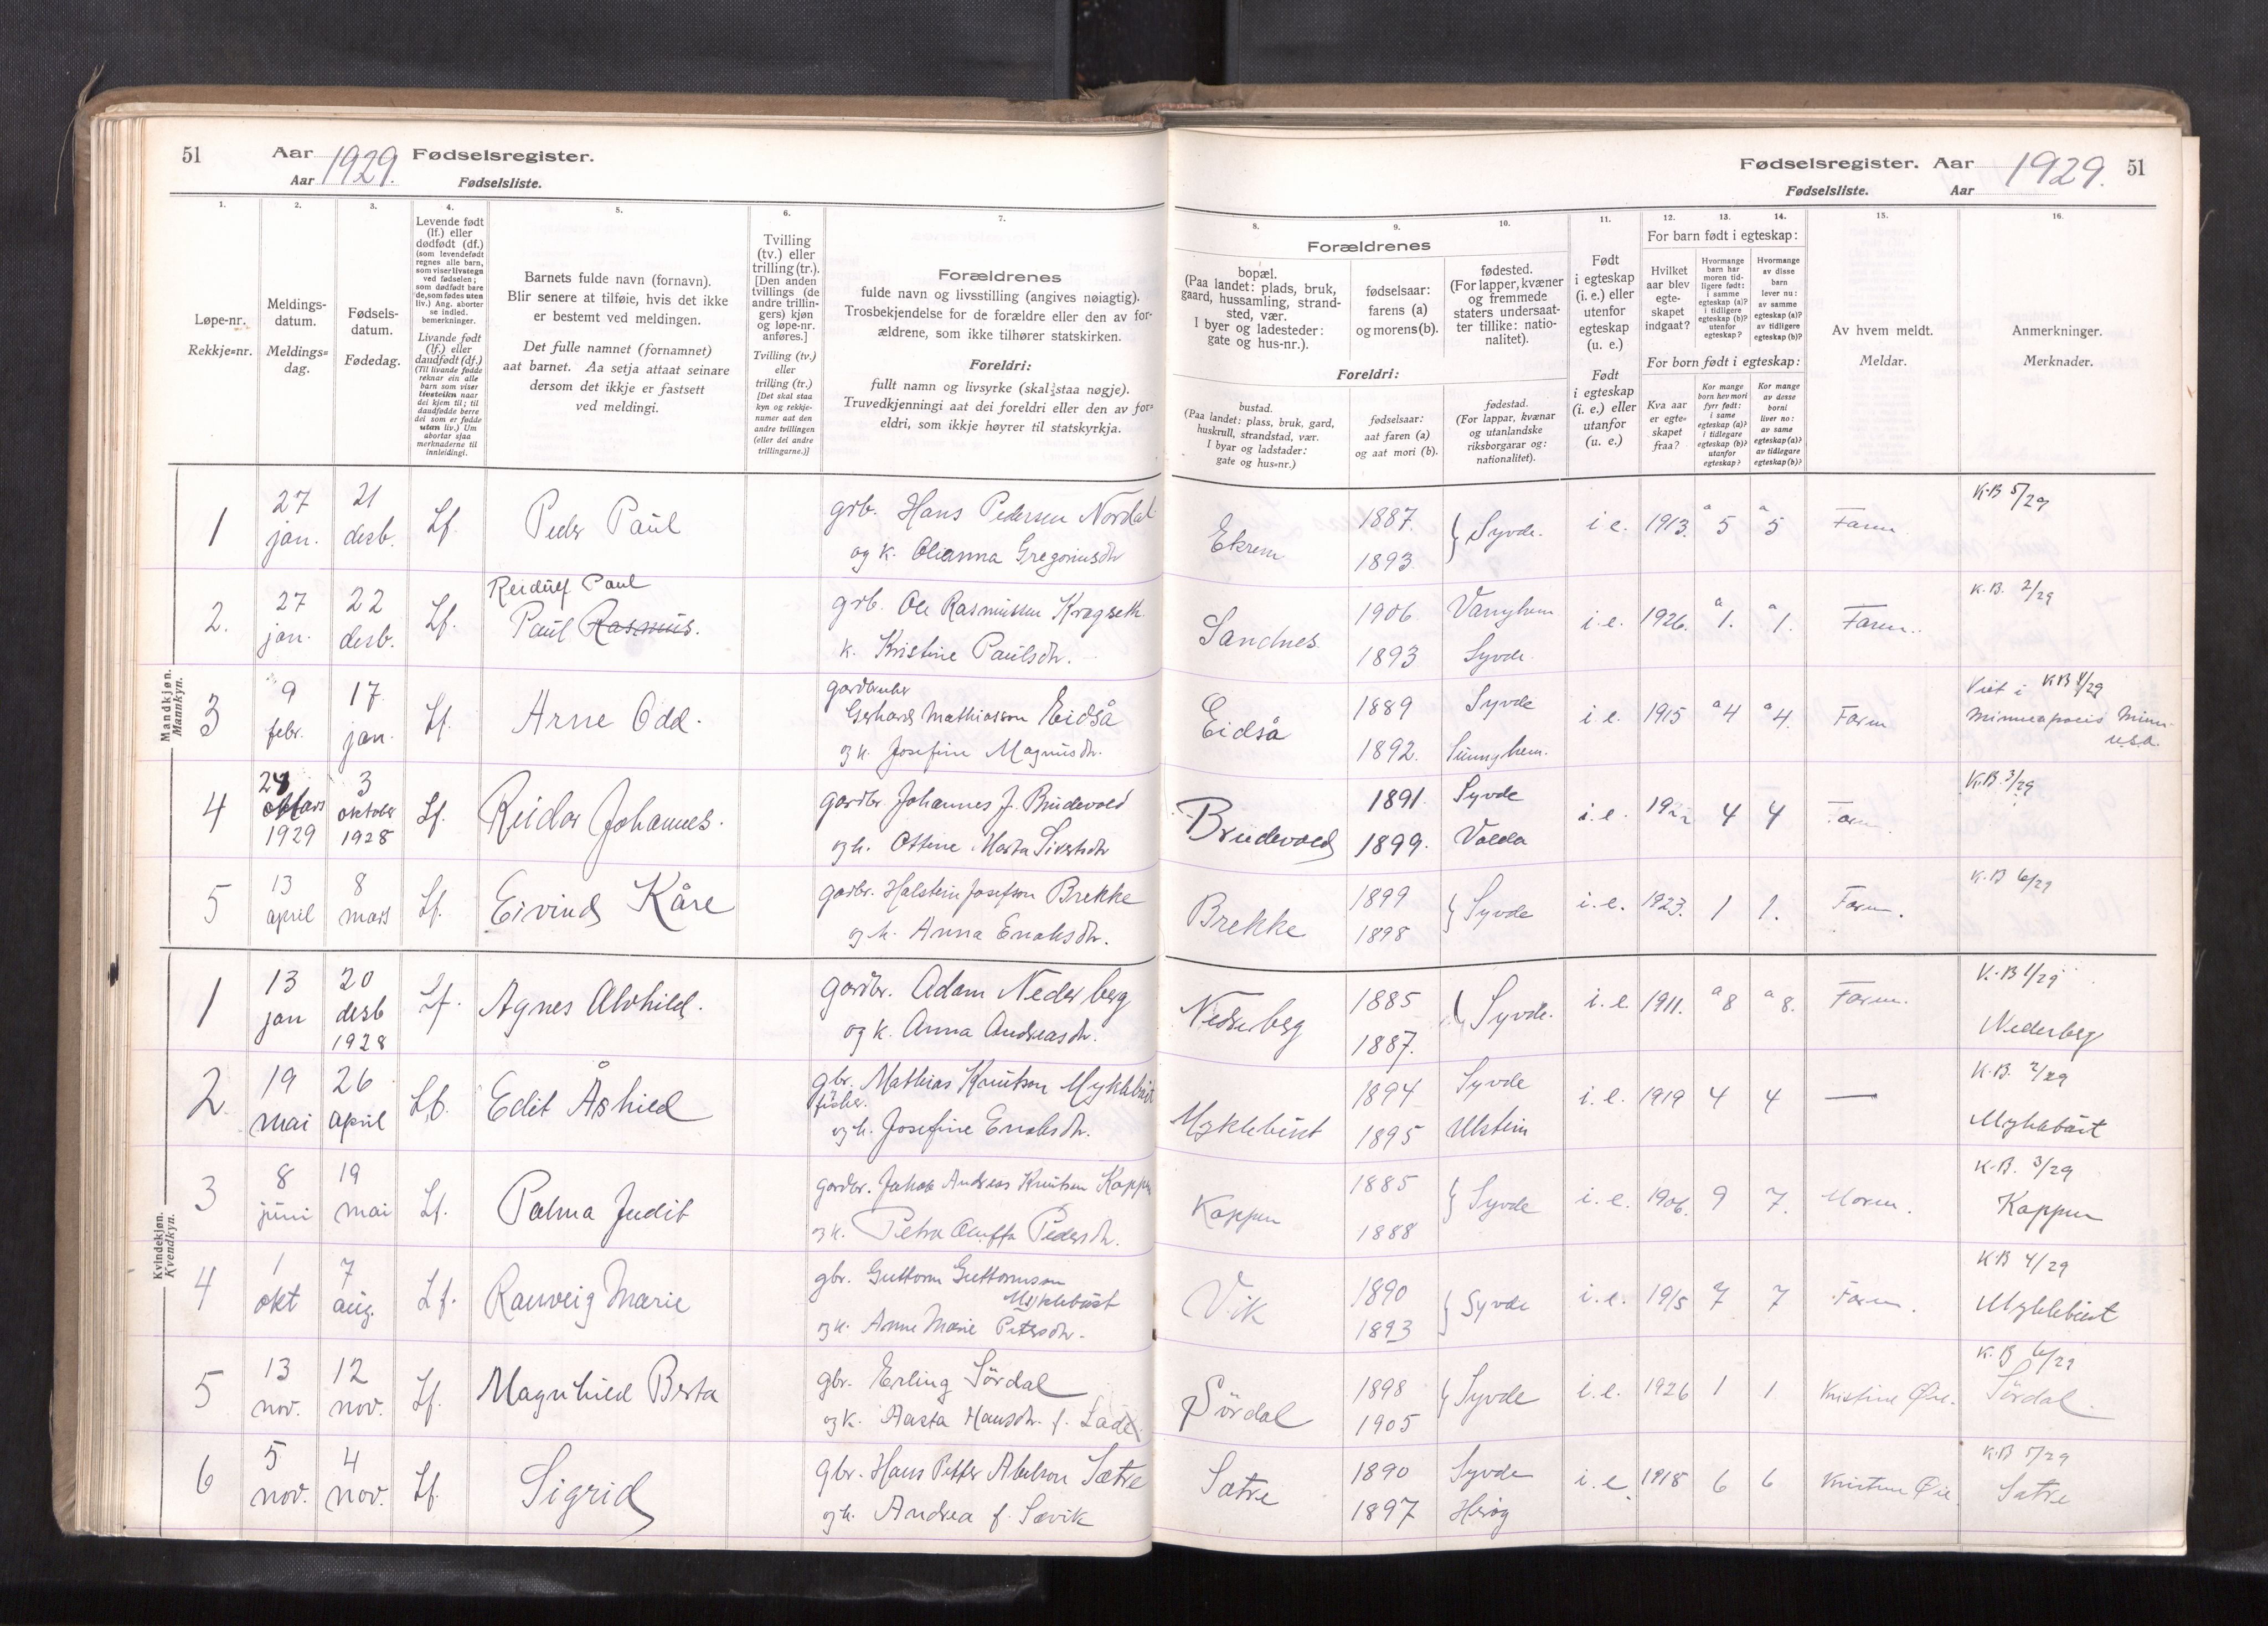 51 Aar 1929. Fødselsregister.
Aar Fødselsliste.
Fødselsregister. Aar 1929. 51
Fødselsliste. Aar
1. 2. 3. 4. 5. 6. 7.
Løpe-nr.
Rekkje=nr.
Meldings-
datum.
Meldings=
dag.
Fødsels-
datum.
Fødedag.
Levende født
(lf.) eller
dødfødt (df.)
(som levendefødt
regnes alle barn,
som viser livstegn
ved fødselen;
som dødfødt bare
de, som fødes uten
liv.) Ang. aborter
se indled.
bemerkninger.
Livande født
(lf.) eller
daudfødt (df.)
(Til livande fødde
reknar ein alle
barn som viser
livsteikn naar
dei kjem til; til
daudfødde berre
dei som er fødde
utan liv.) Um
abortar sjaa
merknaderne til
innleidingi.
Barnets fulde navn (fornavn).
Blir senere at tilføie, hvis det ikke
er bestemt ved meldingen.
Det fulle namnet (fornamnet)
aat barnet. Aa setja attaat seinare
dersom det ikkje er fastsett
ved meldingi.
Tvilling
(tv.) eller
trilling (tr.).
[Den anden
tvillings (de
andre trillin-
gers) kjøn
og løpe-nr.
anføres.]
Tvilling (tv.)
eller
trilling (tr.)
[Det skal staa
kyn og rekkje-
numer aat den
andre tvillingen
(eller dei andre
trillingarne.)]
Forældrenes
fulde navn og livsstilling (angives nøiagtig).
Trosbekjendelse for de forældre eller den av for-
ældrene, som ikke tilhører statskirken.
Foreldri:
fullt namn og livsyrke (skal staa nøgje).
Truvedkjenningi aat dei foreldri eller den av for=
eldri, som ikkje høyrer til statskyrkja.
8. 9. 10. 11. 12. 13. 14. 15. 16.
Forældrenes
bopæl.
(Paa landet: plads, bruk,
gaard, hussamling, strand-
sted, vær.
I byer og ladesteder:
gate og hus-nr.).
fødselsaar:
farens (a)
og morens (b).
fødested.
(For lapper, kvæner
og fremmede
staters undersaat-
ter tillike: natio-
nalitet).
Foreldri:
bustad.
(Paa landet: plass, bruk, gard,
huskrull, strandstad, vær.
I byar og ladstader:
gate og hus=nr.)
fødselsaar:
aat faren (a)
og aat mori (b).
fødestad.
(For lappar, kvænar
og utanlandske
riksborgarar og:
nationalitet).
Født
i egteskap
(i. e.) eller
utenfor
egteskap
(u. e.)
Født
i egteskap
(i. e.) eller
utanfor
(u. e.)
For barn født i egteskap:
Hvilket
aar blev
egte-
skapet
indgaat?
Hvormange
barn har
moren tid-
ligere født:
i samme
egteskap (a)?
i tidligere
egteskap (b)?
utenfor
egteskap?
Hvormange
av disse
barn
lever nu:
av samme
egteskap (a)?
av tidligere
egteskap (b)?
For born født i egteskap:
Kva aar
er egte-
skapet
fraa?
Kor mange
born hev mori
fyrr født:
i same
egteskap (a)?
i tidlegare
egteskap (b)?
utanfor
egteskap?
Kor mange
av desse
borni
liver no:
av same
egteskap (a)?
av tidlegare
egteskap (b)?
Av hvem meldt.
Meldar.
Anmerkninger.
Merknader.
Mandkjøn.
Mannkyn.
1 27 jan. 21 desb. Lf. Peder Paul
grb. Hans Pedersen Nordal
og k. Olianna Gregoriusdtr
Ekrem 1887. 1893. Syvde. i e. 1913. a 5 a 5 Faren K.B 5/29
2. 27 jan. 22 desb. Lf. Reidulf Paul
Paul Rasmus.
grb. Ole Rasmussen Kragseth
k. Kristine Paulsdtr.
Sandnes 1906 1893 Vanylven Syvde i. e. 1926. a 1. a 1. Faren. K.B. 2/29
3 9 febr. 17 jan. Lf. Arne Odd.
gardbruker
Gerhard Mathiasson Eidså
og k. Josefine Magnusdtr.
Eidså 1889 1892. Syvde i. e. 1915 a 4 a 4. Faren
Viet i K.B 4/29
Minneapolis Minn
USA.
4 mars 1929 3 oktober 1928 Lf. Reidar Johannes.
gardbr. Johannes J. Brudevold
og k. Ottine Marta Sivertsdtr
Brudevold 1891. 1899. Syvde Volda i. e. 4 4 Faren K.B. 3/29
5 13 april 8 mars Lf. Eivind Kåre
gardbr. Halstein Josefson Brekke
og k. Anna Enoksdtr.
Brekke 1899 1898 Syvde i. e. 1923. 1 1. Faren. K.B 6/29
Kvindekjøn.
Kvendkyn.
1 13 jan 20 desb 1928 Lf. Agnes Alvhild.
gardbr. Adam Nederberg
og k. Anna Andreasdtr.
Nederberg 1885 1887. Syvde. i. e. 1911. a 8 a 8. Faren. K.B 1/29
Nederberg
2 19 mai 26 april Lf. Edit Åshild
gbr. Mathias Knutson Myklebust
fisker.
og k. Josefine Enoksdtr.
Myklebust 1894 1895 Syvde Ulstein i. e. 1919 4 4 — K.B. 2/29
Myklebust
3 8 juni 19 mai Lf. Palma Judit
gardbr. Jakob Andreas Knutsen Koppen
og k. Petra Oluffa Pedersdtr.
Koppen 1885 1888 Syvde i. e. 1906. 9 7. Moren. K.B. 3/29
Koppen
4 1 okt 7 aug. Lf. Ranveig Marie
gbr. Guttorm Guttormson
Myklebust
og k. Anne Marie Petersdtr.
Vik 1890 1893 Syvde i. e. 1915 7 7 Faren. K.B 4/29
Myklebust
5 13 nov. 12 nov. Lf. Magnhild Berta
gbr. Erling Sördal
og k. Aasta Hansdtr. f. Lade
Sördal 1898 1905 Syvde i. e. 1926 1 1 Kristine Øie. K.B 6/29
Sördal.
6 5 nov. 4 nov. Lf. Sigrid
gbr. Hans Petter Abelson Sætre
og k. Andrea f. Sævik
Sætre 1890 1897 Syvde Herøy i. e. 1918 6 6 Kristine Øie. K.B 5/29
Sætre